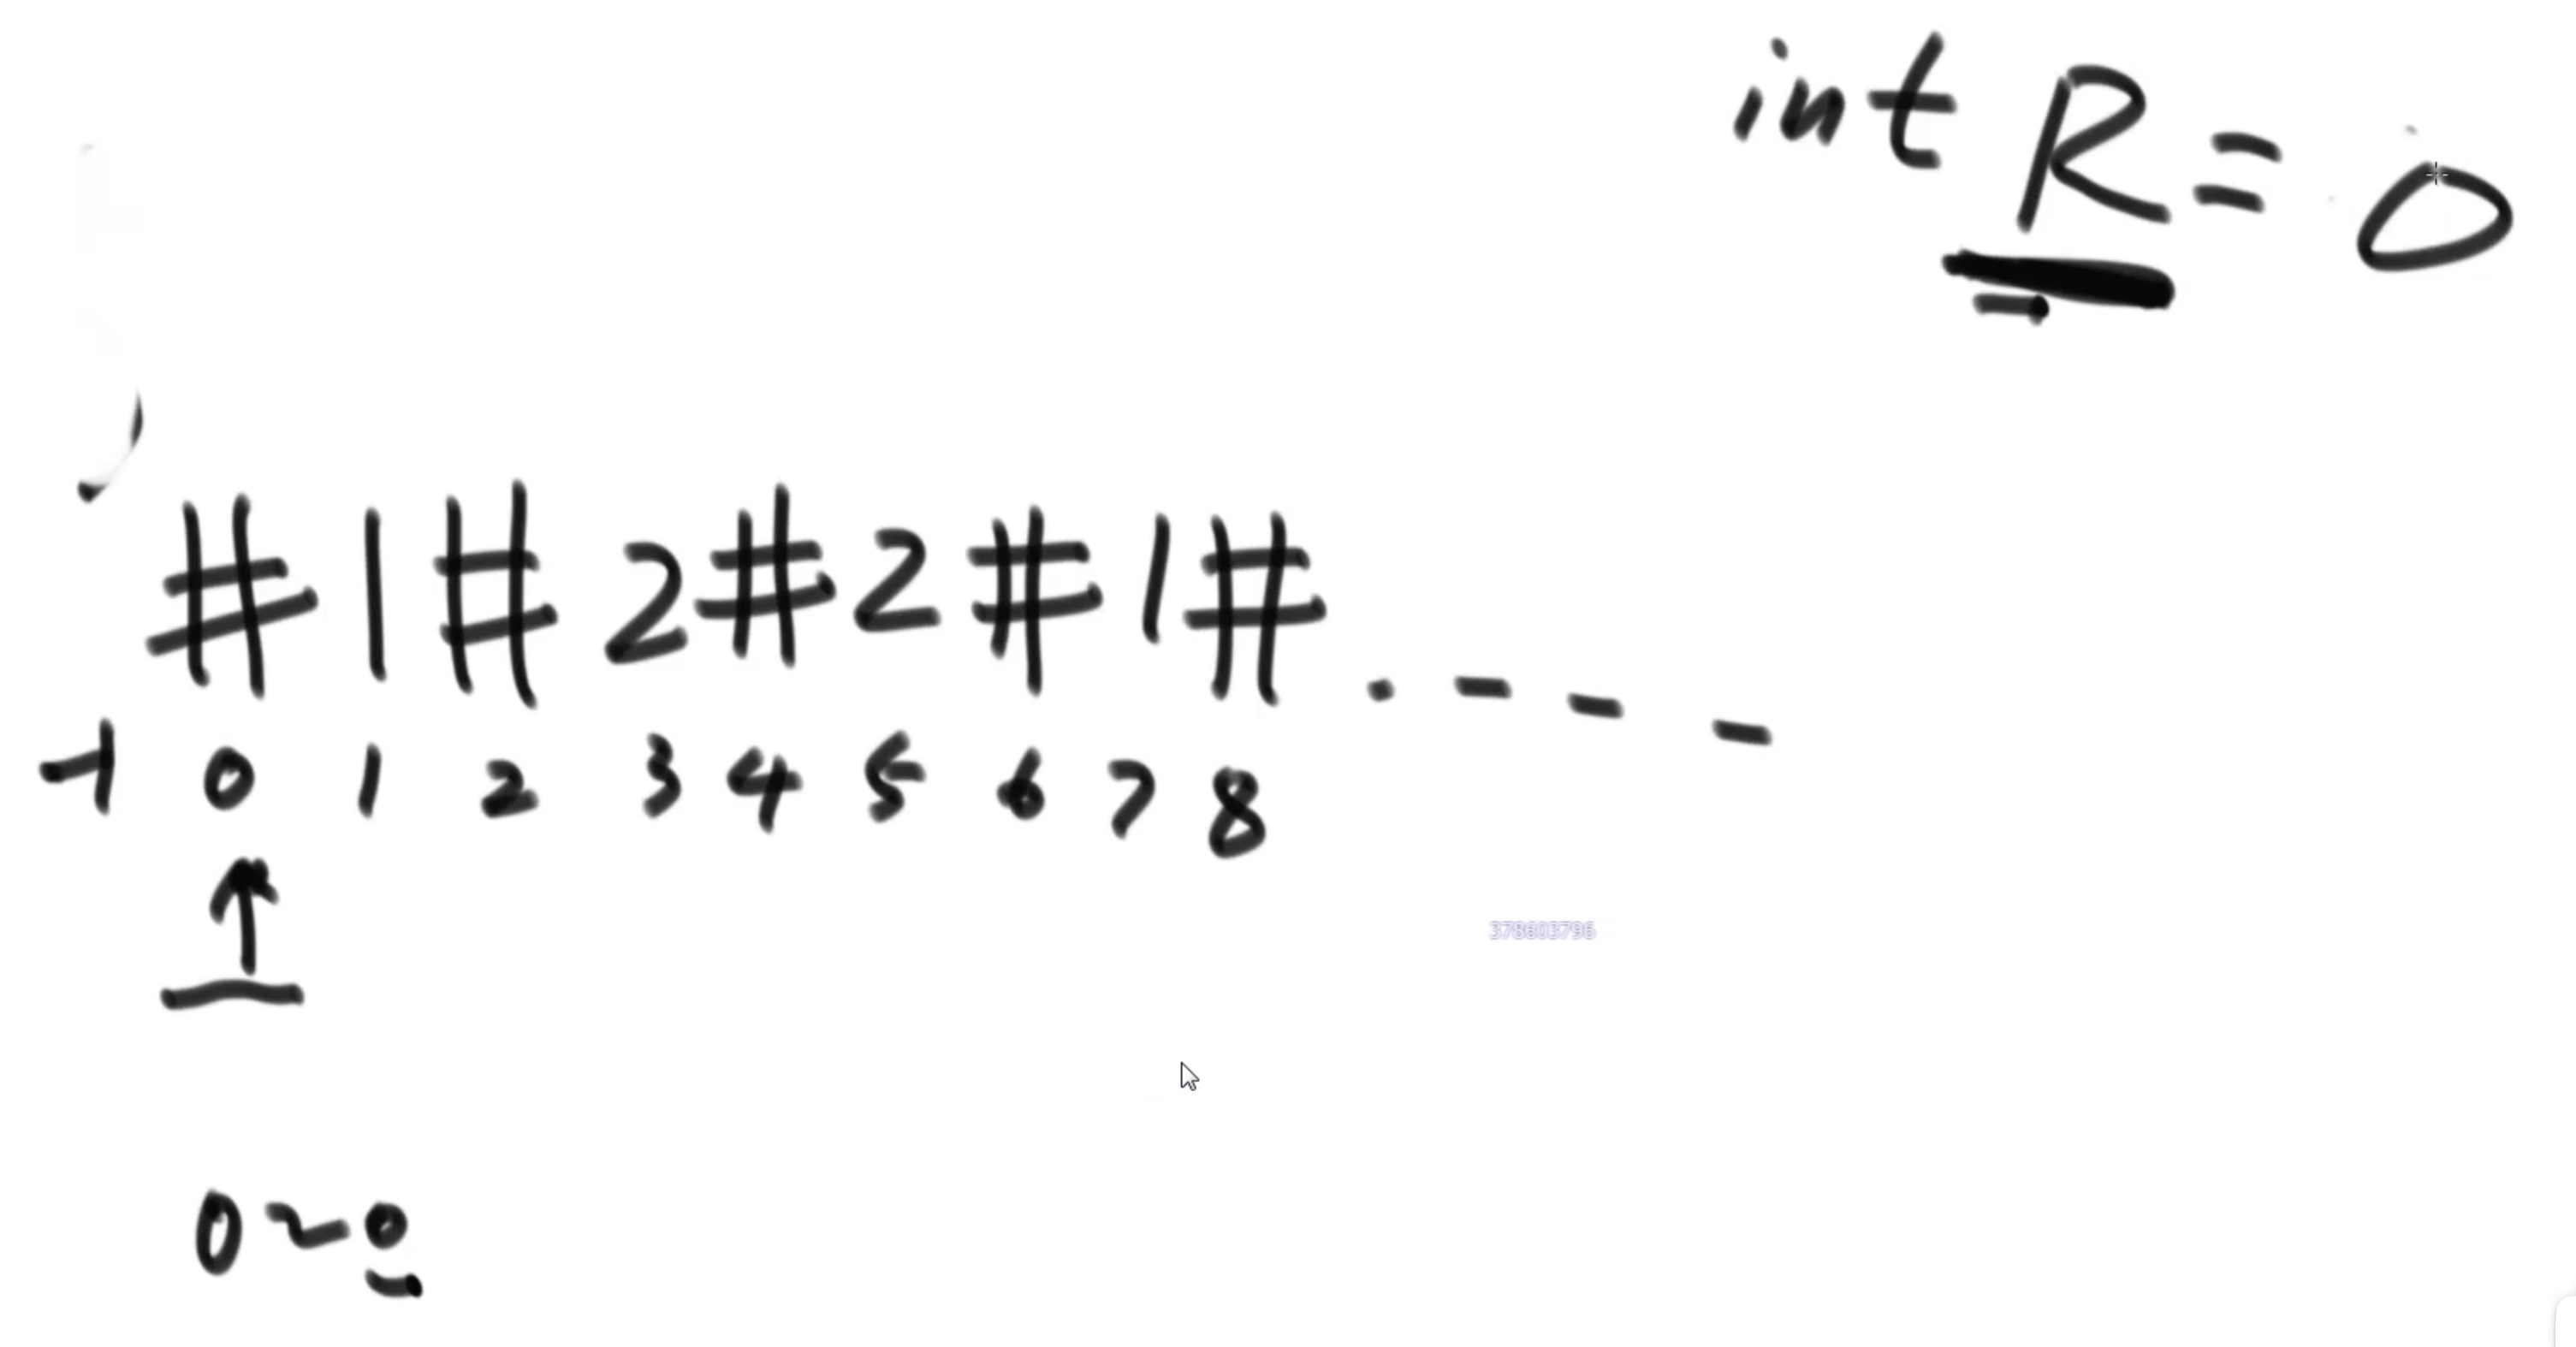 int R = 0
#1#2#2#1#. - - -
-1 0 1 2 3 4 5 6 7 8
378603796
0~0